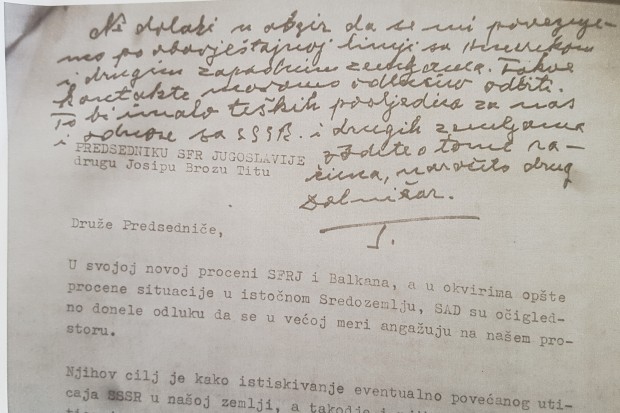 Ne dolazi u obzir da se mi povezuje-
mo po obavještajnoj liniji sa Amerikom
i drugim zapadnim zemljama. Takve
kontakte moramo odlučno odbiti.
To bi imalo teških posljedica za nas
i odnose sa SSSR. i drugih zemljama
vodite o tome ra-
PREDSEDNIKU SFR JUGOSLAVIJE
čuna, naročito drug
drugu Josipu Brozu Titu
Dolničar.
T.
Druže Predsedniče,
U svojoj novoj proceni SFRJ i Balkana, a u okvirima opšte
procene situacije u istočnom Sredozemlju, SAD su očigled-
no donele odluku da se u većoj meri angažuju na našem pro-
storu.
Njihov cilj je kako istiskivanje eventualno povećanog uti-
caja SSSR u našoj zemlji, a takodje i